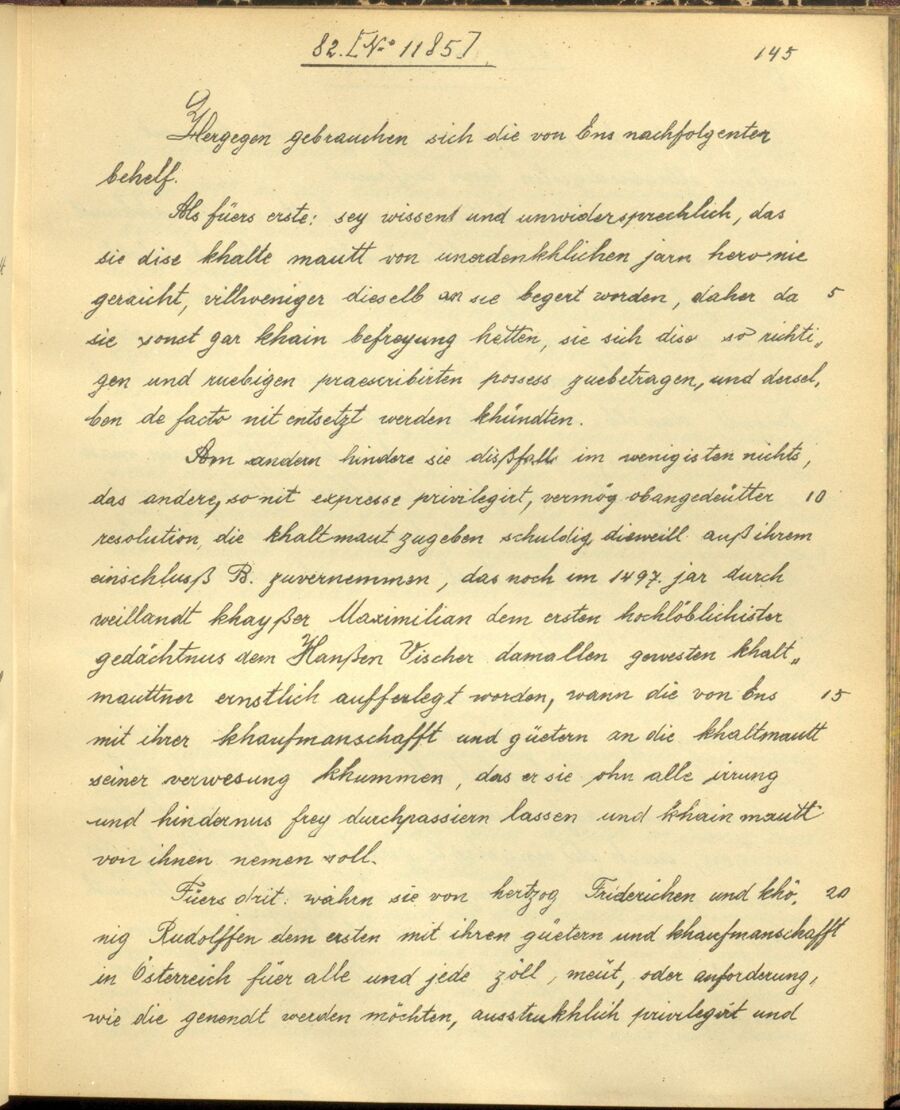 82. [No 1185]
145
Hergegen gebrauchen sich die von Ens nachfolgenter
behelf.
Als füers erste: sey wissent und unwidersprechlich, das
sie dise khalte mautt von unerdenkhlichen jarn hero nie
geraicht, villweniger dieselb an sie begert worden, daher da 5
sie sonst gar khain befreyung hetten, sie sich diso so richti„
gen und ruebigen praescribirten possess zuebetragen, und dersel„
ben de facto nit entsetzt werden khündten.
Am andern hindere sie dißfalls im wenigisten nichts,
das andere, so nit expresse privilegirt, vermög obangedeütter 10
resolution, die khaltmaut zugeben schuldig, dieweill außihrem
einschlusß B. zuvernemmen, das noch im 1497. jar durch
weillandt khayßer Maximilian dem ersten hochlöblichister
gedächtnus dem Hanßen Vischer damallen gewesten khalt„
mauttner ernstlich aufferlegt worden, wann die von Ens 15
mit ihrer khaufmanschafft und güetern an die khaltmautt
seiner verwesung khummen, das er sie ohn alle irrung
und hindernus frey durchpassiern lassen und khain mautt
von ihnen nemen soll.
Füers drit: wahrn sie von hertzog Friderichen und khö„ 20
nig Rudolffen dem ersten mit ihren güetern und khaufmanschafft
in Österreich füer alle und jede zöll, meüt, oder anforderung,
wie die genendt werden möchten, ausstrukhlich privilegirt und